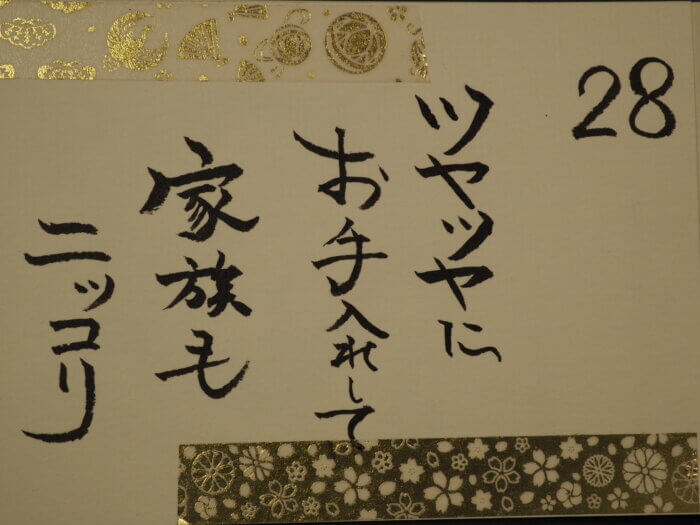 28
ツヤツヤに
お手入れして
家族毛
ニッコリ